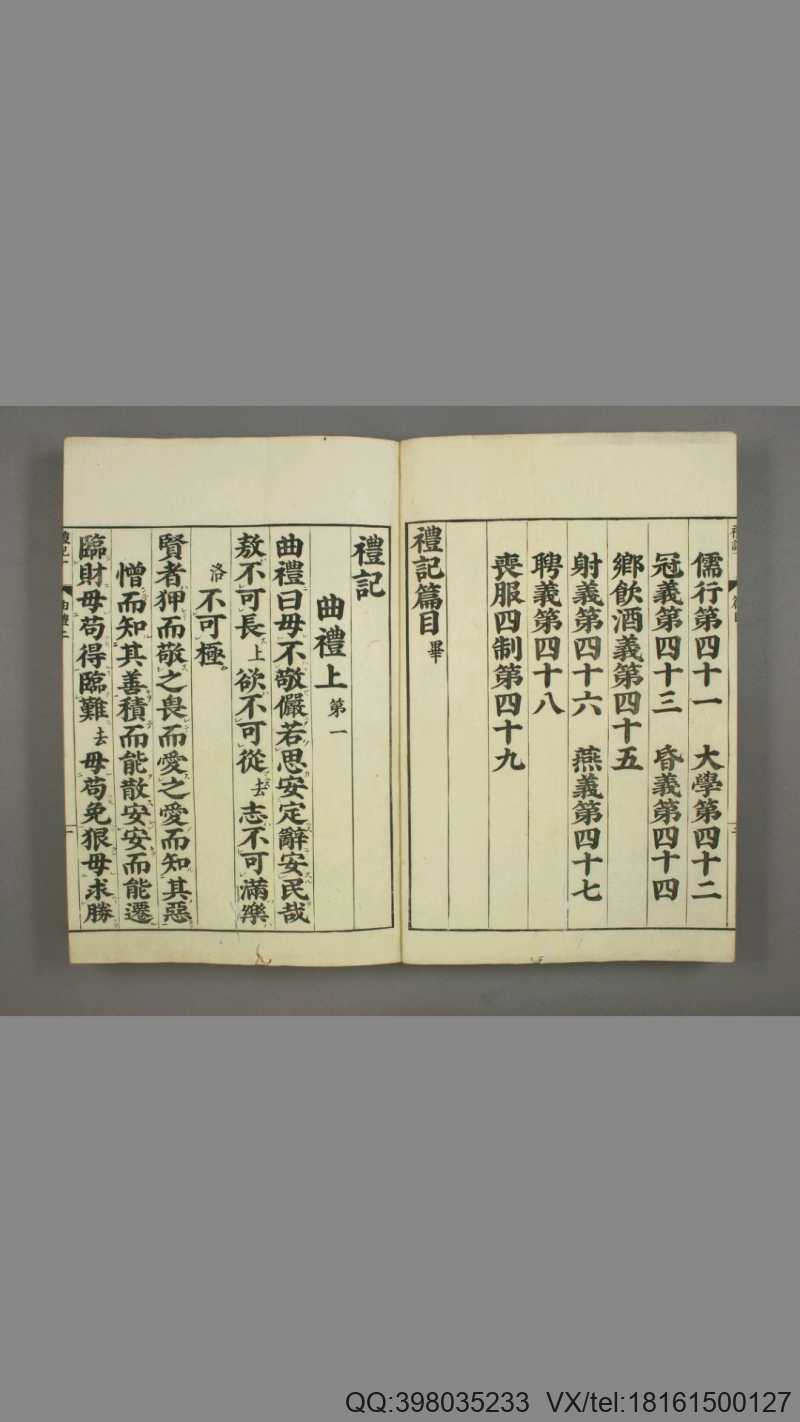 儒行第四十一　大學第四十二
冠義第四十三　昏義第四十四
鄉飲酒義第四十五
射義第四十六　燕義第四十七
聘義第四十八
喪服四制第四十九
禮記篇目畢
禮記
曲禮上第一
曲禮曰毋不敬儼若思安定辭安民哉
敖不可長上欲不可從去志不可滿樂
洛不可極
賢者狎而敬之畏而愛之愛而知其惡
憎而知其善積而能散安安而能遷
臨財毋苟得臨難去毋苟免狠毋求勝
QQ:398035233 VX/tel:18161500127